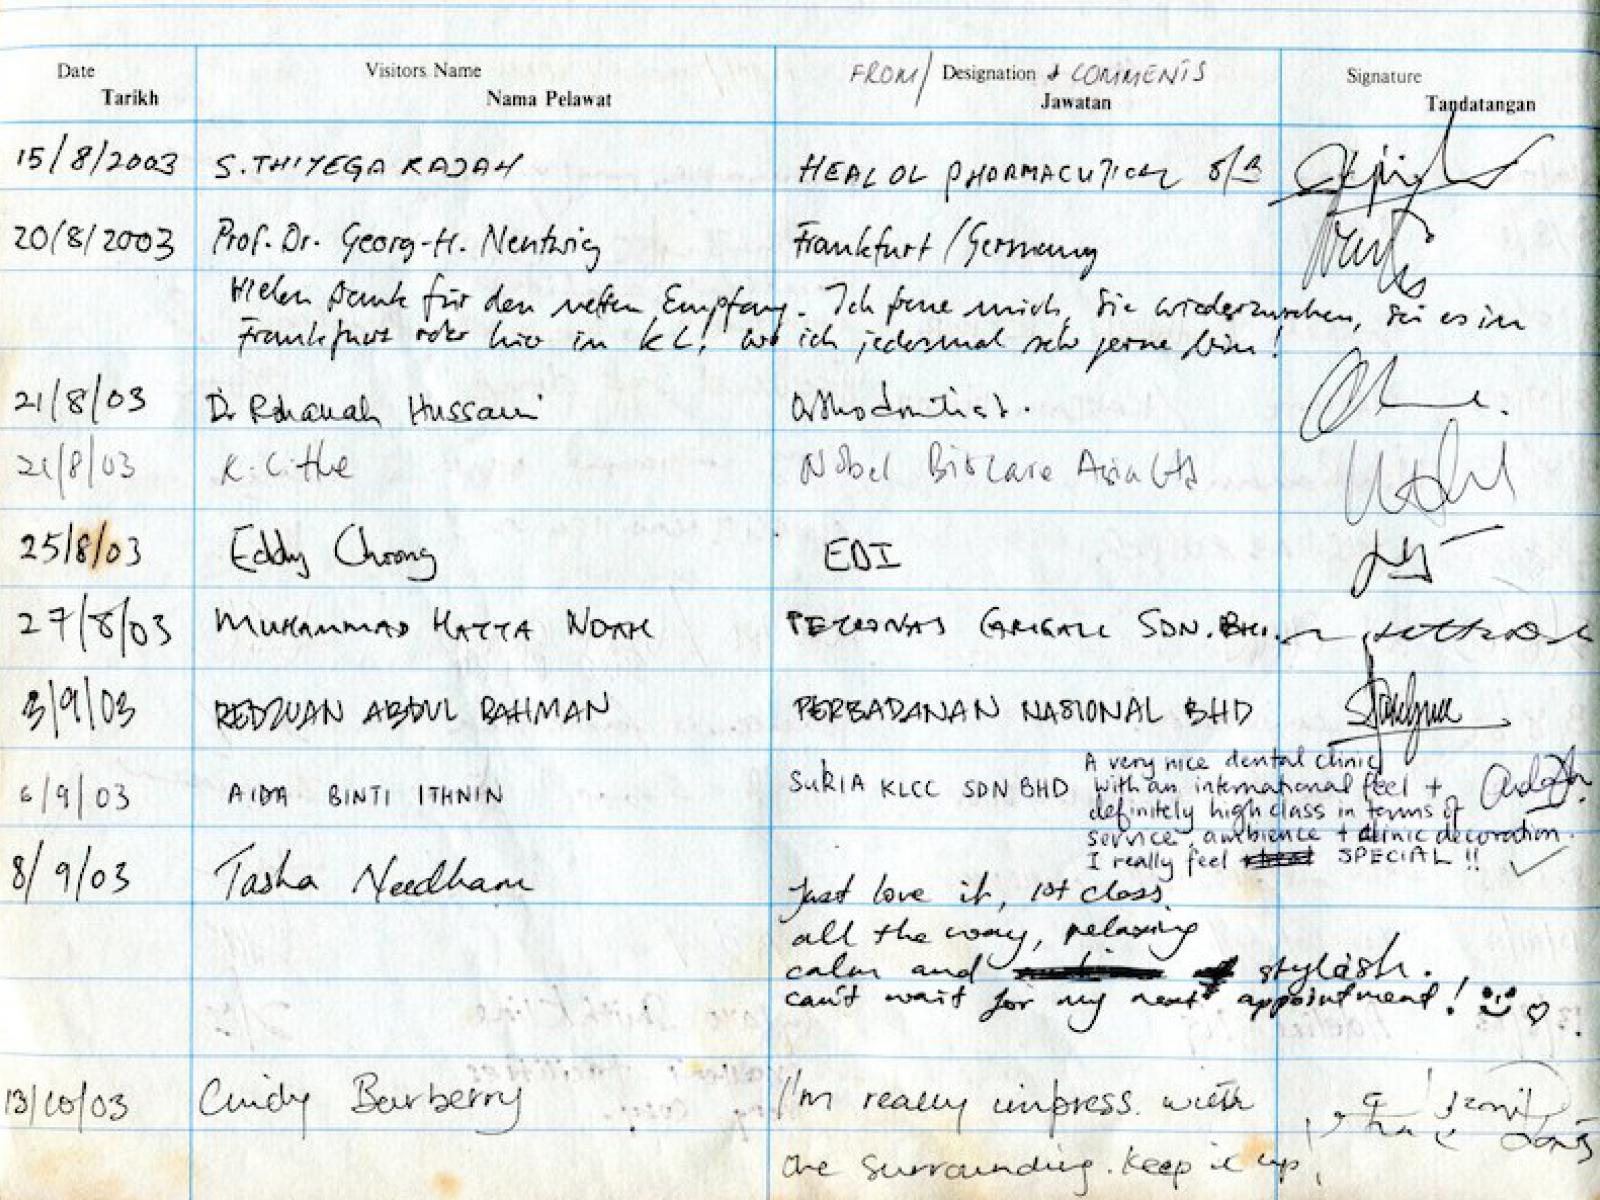 Date Visitors Name FROM/ Designation & COMMENTS Signature
Tarikh Nama Pelawat Jawatan Tandatangan
15/8/2003 S. THIYEGA RAJAH HEALOL PHARMACUTICAL S/B
20/8/2003 Prof. Dr. Georg-H. Nentwig Frankfurt / Germany
Vielen Dank für den netten Empfang. Ich freue mich, Sie wiederzusehen, sei es in
Frankfurt oder hier in KL, wo ich jedesmal sehr gerne bin!
21/8/03 Dr Rohanah Hussain Orthodontist.
21/8/03 Nobel Biocare Asia Ltd
25/8/03 Eddy Choong EDI
27/8/03 MUHAMMAD HATTA NOAH PETRONAS CARIGALI SDN. BHD.
3/9/03 REDZUAN ABDUL RAHMAN PERBADANAN NASIONAL BHD
6/9/03 AIDA BINTI ITHNIN SURIA KLCC SDN BHD A very nice dental clinic
with an international feel +
definitely high class in terms of
service, ambience + clinic decoration.
I really feel SPECIAL !!
8/9/03 Tasha Needham Just love it, 1st class
all the way, relaxing
calm and stylish.
can't wait for my next appointment!
13/10/03 Cindy Burberry I'm really impress with
the surrounding. Keep it up,